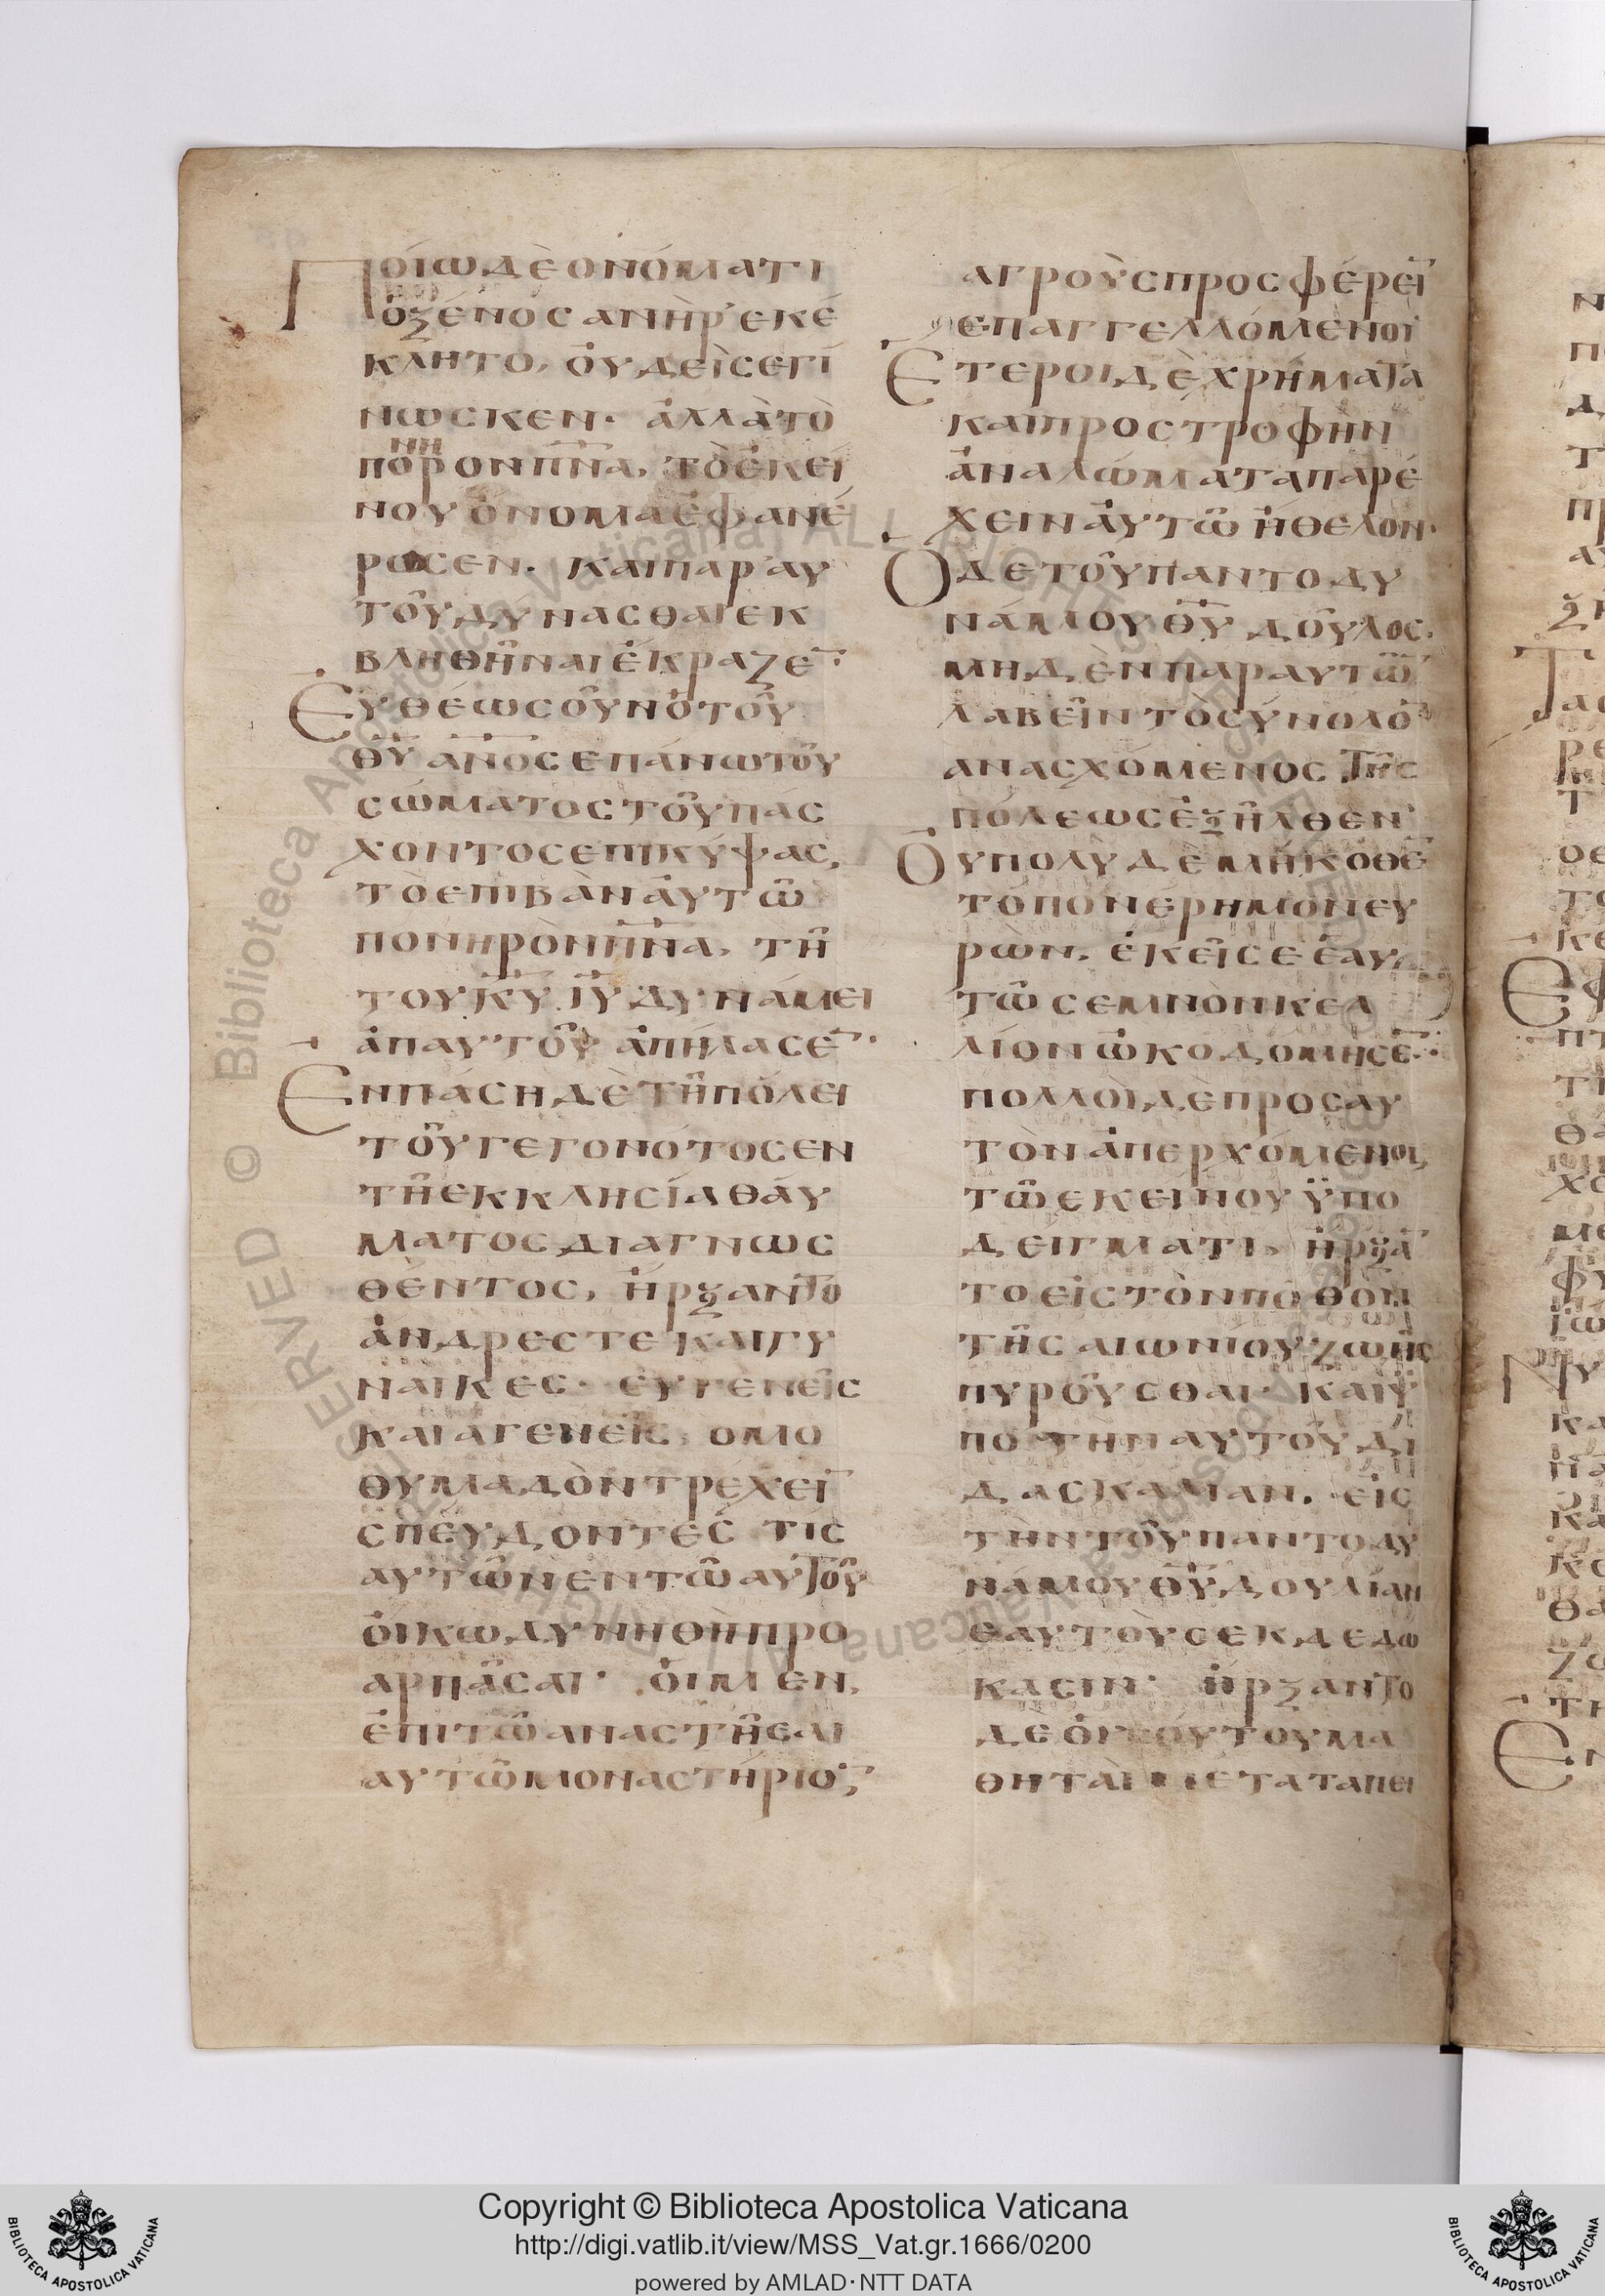 Ποίω δὲ ονόματι
ὁ ξένος ανὴρ εκέ
κλητο, ὀυδεὶς εγί
νωσκεν· ἀλλὰ τὸ
πονηρον πνα, τὸ ἐκεί
νου ὄνομα ἐφανέ
ρωσεν. καὶ παρ' αυ
τοῦ δύνασθαι εκ
βληθῆναι ἔκραζε̅·
Ευθέως οὖν ὁ τοῦ
θυ ανος επάνω τοῦ
σώματος τοῦ πάσ
χοντος επικύψας,
τὸ επιβὰν ἀυτῶ
πονηρὸν πνα, τῆ
του κυ ιυ δυνάμει
ἀπ αυτοῦ ἀπήλασε̅·
Εν πάση δὲ τῆ πόλει
τοῦ γεγονότος εν
τῆ εκκλησία θαύ
ματος διαγνωσ
θέντος, ἤρξαντο
ἄνδρες τε καὶ γυ
ναῖκες· ευγενεῖς
καὶ αγενεῖς, ομο
θυμαδὸν τρέχει̅
σπεύδοντες τίς
αυτῶν εν τῶ αυτοῦ
ὄικω δυνηθῆ προ
αρπᾶσαι· ὁι μεν,
ἐπὶ τῶ αναστῆσαι
αυτῶ μοναστήριο̅,
αγροὺς προσφέρει̅
επαγγελλόμενοι
Ετεροι δὲ χρήματα
καὶ προς τροφὴν
ἀναλώματα παρέ
χειν ἀυτῶ ἤθελον·
Ο δε τοῦ παντοδυ
νάμου θυ δοῦλος.
μηδὲν παρ αυτῶ̅
λαβεῖν τὸ σύνολο̅
ανασχόμενος τῆς
πόλεως ἐξῆλθεν
Ου πολὺ δὲ μήκοθε̅
τόπον έρημον ευ
ρὼν. ἐκεῖσε ἑαυ
τῶ σεμνὸν κελ
λίον ὠκοδόμησε̅·
πολλοὶ δὲ προς αυ
τὸν ἀπερχόμενοι,
τῶ εκείνου ϋπο
δείγματι, ἤρξα̅
το εἰς τὸν πόθον
τῆς αιωνίου ζωῆς
πυροῦσθαι· καὶ ϋ
πο την αυτοῦ δι
δασκαλίαν. εἰς
τὴν τοῦ παντοδυ
νάμου θυ δουλίαν
ἑαυτοὺς εκδεδω
κασιν· ἤρξαντο
δε ὁι τούτου μα
θηταὶ μετα ταπει